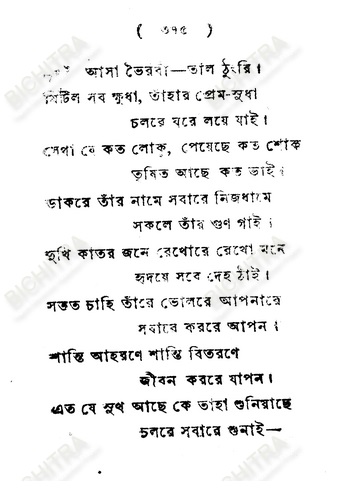 ( ৩৭৫ )
আসা ভৈরবী—তাল ঠুংরি।
মিটিল সব ক্ষুধা, তাঁহার প্রেম-সুধা
চলরে ঘরে লয়ে যাই।
সেথা যে কত লোক, পেয়েছে কত শোক
তৃষিত আছে কত ভাই।
ডাকরে তাঁর নামে সবারে নিজধামে
সকলে তাঁর গুণ গাই।
দুখি কাতর জনে রেখোরে রেখো মনে
হৃদয়ে সবে দেহ ঠাঁই।
সতত চাহি তাঁরে ভোলরে আপনারে
সবারে কররে আপন।
শান্তি আহরণে শান্তি বিতরণে
জীবন কররে যাপন।
এত যে সুখ আছে কে তাহা শুনিয়াছে
চলরে সবারে শুনাই—
BICHITRA